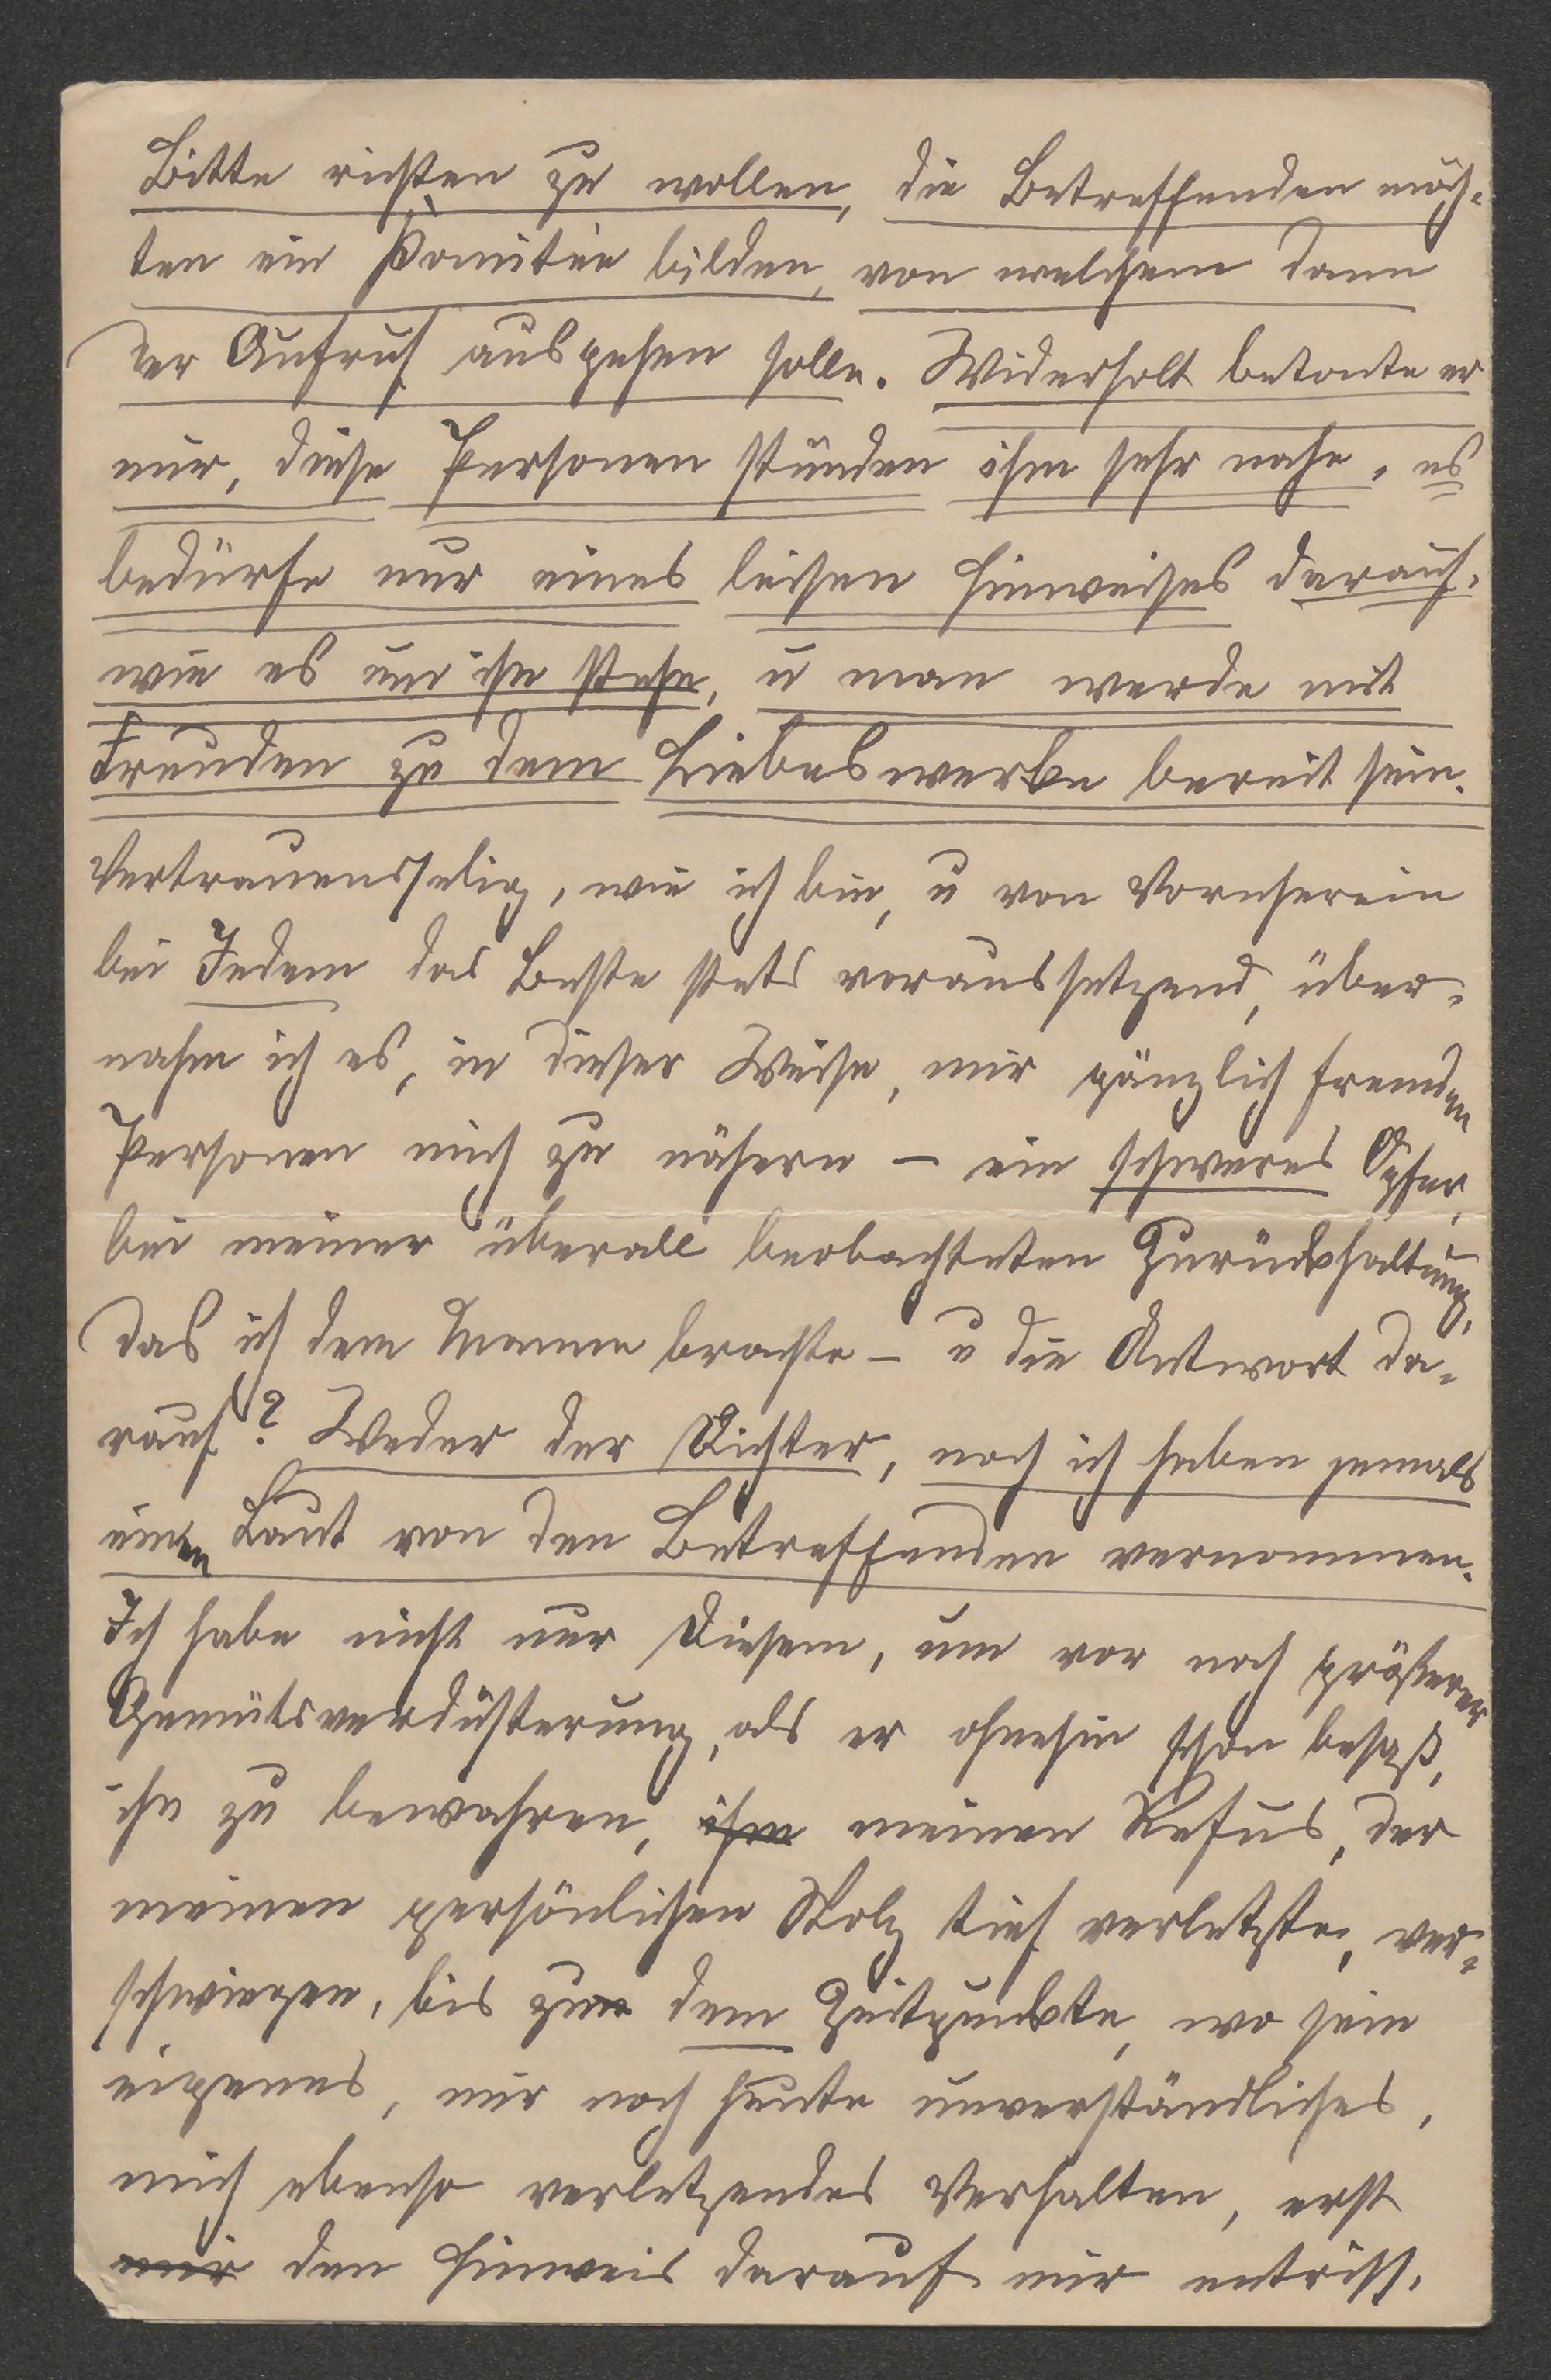 Bitte richten zu wollen, die Betreffenden möch-
ten ein Komitée bilden, von welchem dann
der Aufruf ausgehen solle. Widerholt betonte er
mir, diese Personen stünden ihm sehr nahe, es
bedürfe nur eines leisen Hinweises darauf,
wie es um ihn stehe, u man werde mit
Freuden zu dem Liebeswerke bereit sein.
Vertrauensselig, wie ich bin, u von Vornherein
bei Jedem das Beste stets voraussetzend, über-
nahm ich es, in dieser Weise, mir gänzlich fremden
Personen mich zu nähern – ein schweres Opfer,
bei meiner überall beobachteten Zurückhaltung,
das ich dem Manne brachte – u die Antwort da-
rauf? Weder der Dichter, noch ich haben jemals
einen Laut von den Betreffenden vernommen.
Ich habe nicht nur Diesem, um vor noch größerer
Gemütsverdüsterung, als er ohnehin schon besaß,
ihn zu bewahren, ihm meinen Refus, der
meinen persönlichen Stolz tief verletzte, ver-
schwiegen, bis zum dem Zeitpunkte, wo sein
eigenes, mir noch heute unverständliches,
mich ebenso verletzendes Verhalten, erst
mir den Hinweis darauf mir entriss.